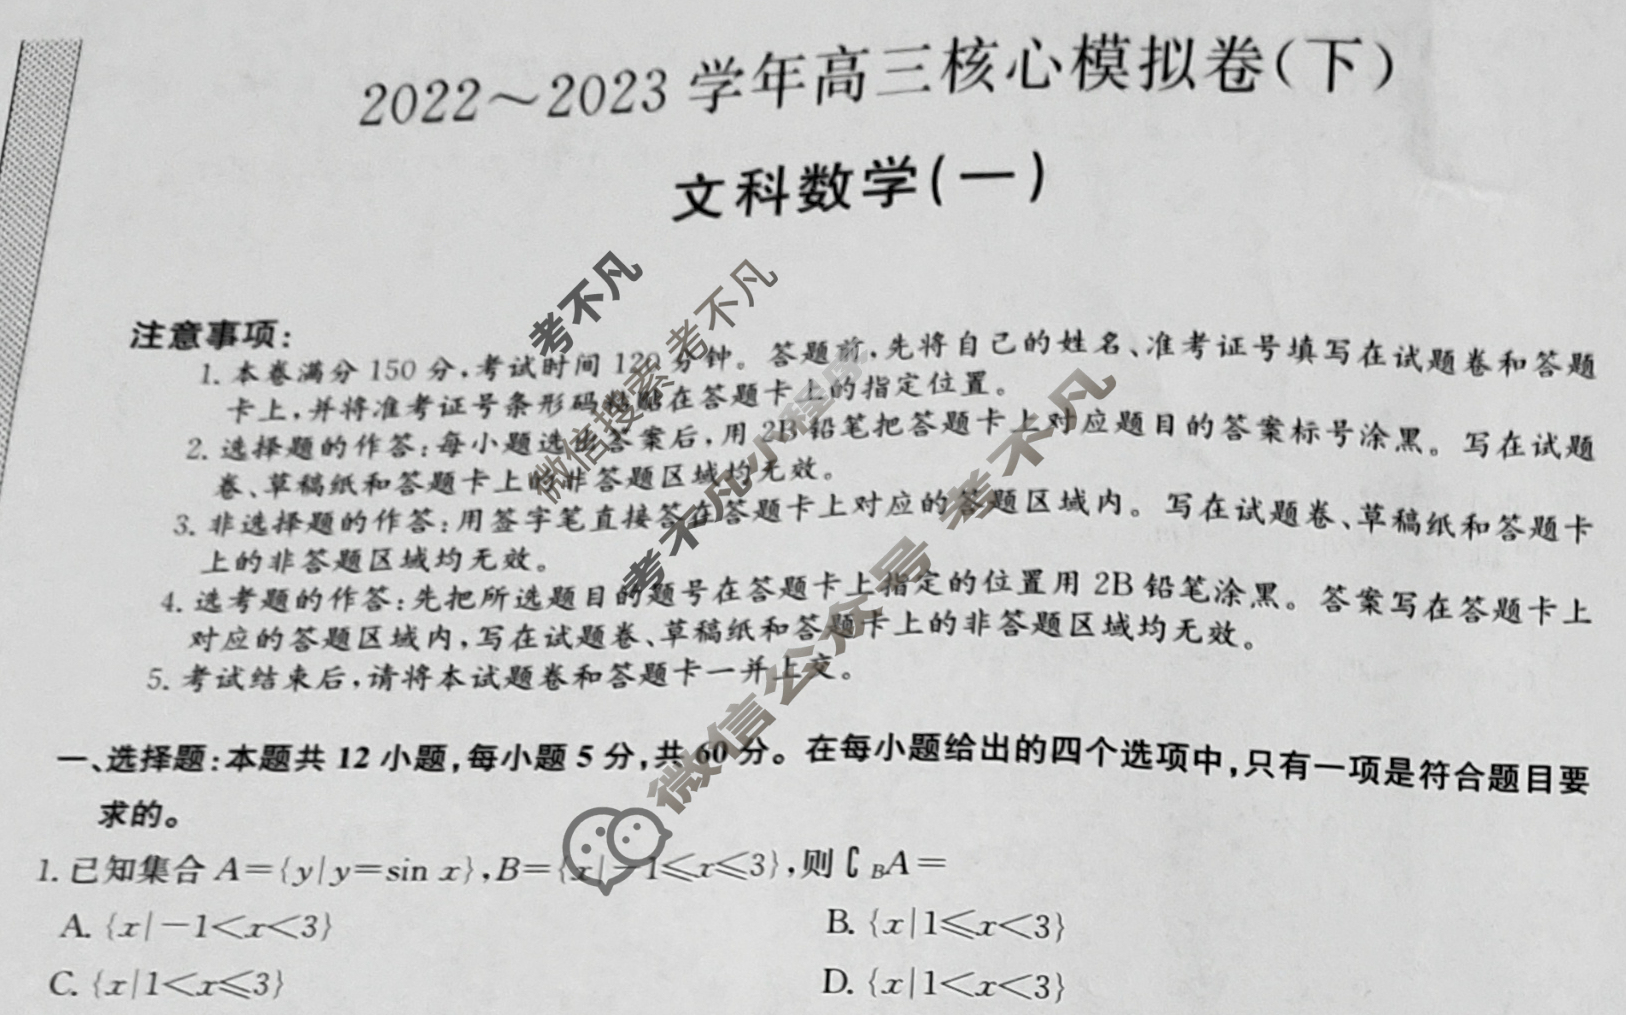 2022～2023 学年高三核心模拟卷(下)
文科数学(一)
注意事项:
1. 本卷满分 150 分,考试时间 120 分钟。答题前,先将自己的姓名、准考证号填写在试题卷和答题
卡上,并将准考证号条形码粘贴在答题卡上的指定位置。
2. 选择题的作答:每小题选出答案后,用 2B 铅笔把答题卡上对应题目的答案标号涂黑。写在试题
卷、草稿纸和答题卡上的非答题区域均无效。
3. 非选择题的作答:用签字笔直接答在答题卡上对应的答题区域内。写在试题卷、草稿纸和答题卡
上的非答题区域均无效。
4. 选考题的作答:先把所选题目的题号在答题卡上指定的位置用 2B 铅笔涂黑。答案写在答题卡上
对应的答题区域内,写在试题卷、草稿纸和答题卡上的非答题区域均无效。
5. 考试结束后,请将本试题卷和答题卡一并上交。
一、选择题:本题共 12 小题,每小题 5 分,共 60 分。在每小题给出的四个选项中,只有一项是符合题目要
求的。
1. 已知集合 A={y|y=sin x},B={x|-1≤x≤3},则∁BA=
A. {x|-1<x<3}
B. {x|1≤x<3}
C. {x|1<x≤3}
D. {x|1<x<3}
考不凡
考不凡
微信搜索
考不凡小程序
微信公众号 考不凡